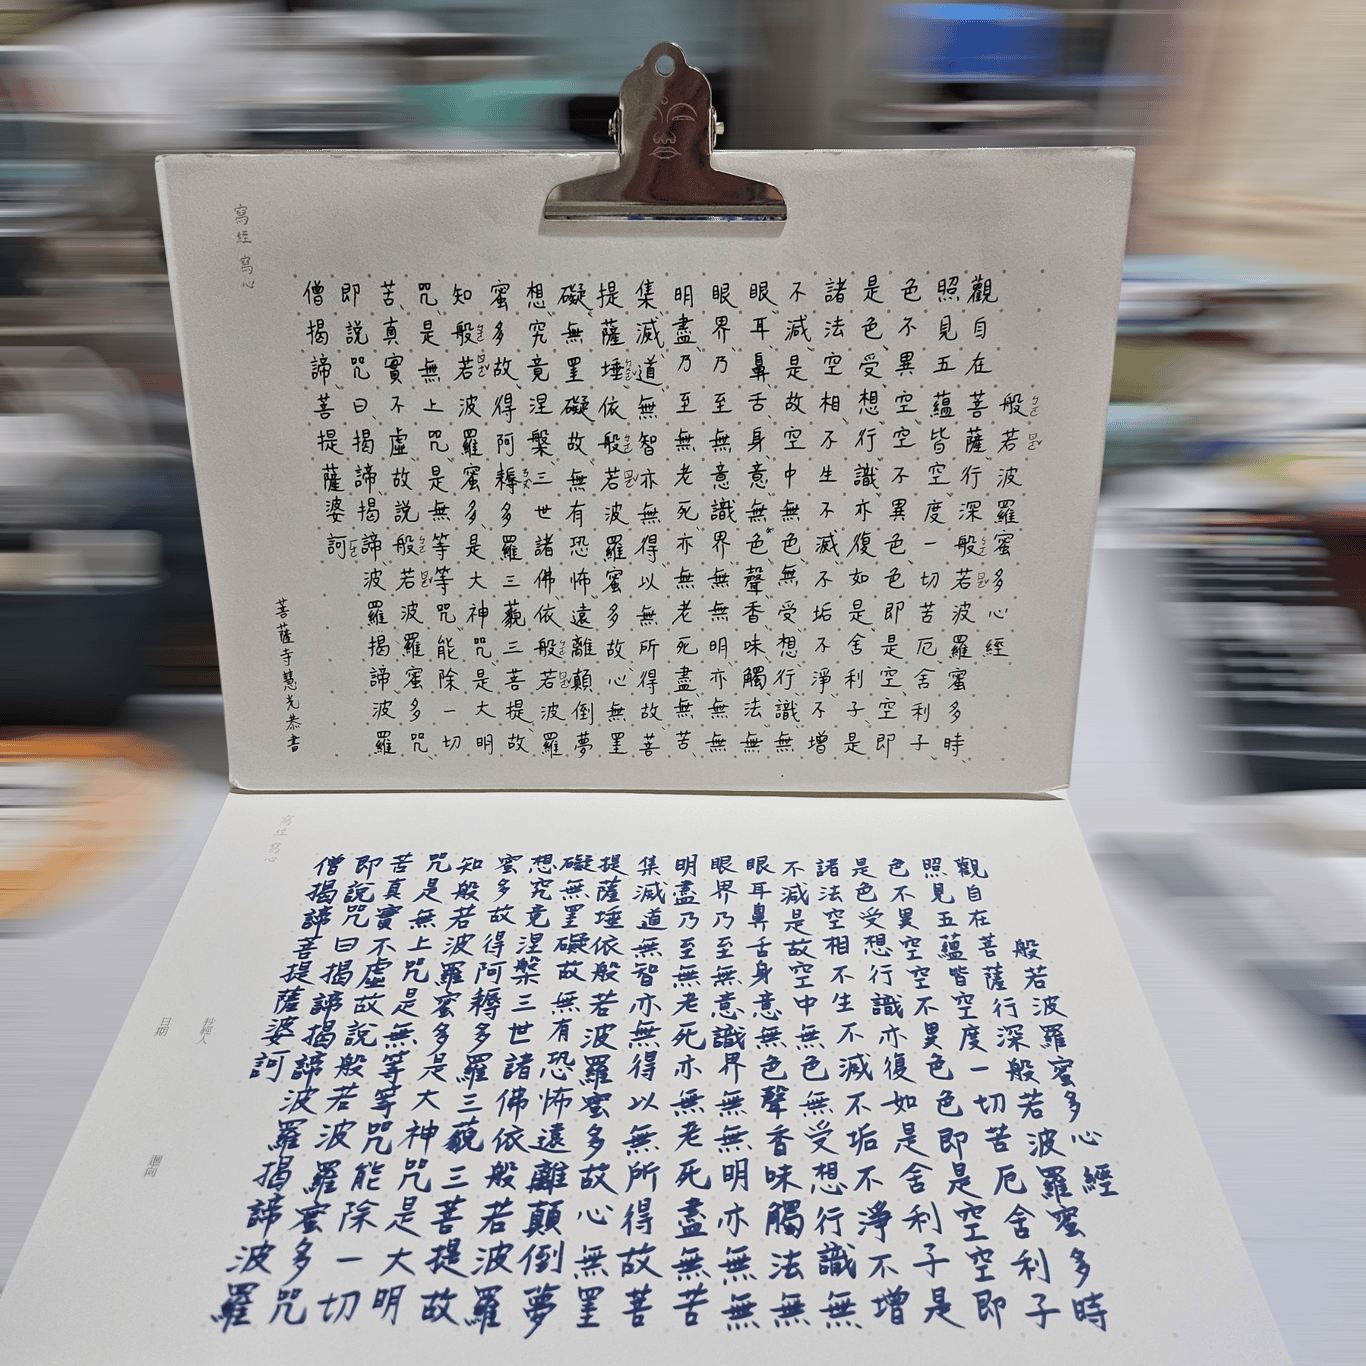 般若波羅蜜多心經
觀自在菩薩行深般若波羅蜜多時
照見五蘊皆空度一切苦厄舍利子
色不異空空不異色色即是空空即
是色受想行識亦復如是舍利子是
諸法空相不生不滅不垢不淨不增
不減是故空中無色無受想行識無
眼耳鼻舌身意無色聲香味觸法無
眼界乃至無意識界無無明亦無無
明盡乃至無老死亦無老死盡無苦
集滅道無智亦無得以無所得故菩
提薩埵依般若波羅蜜多故心無罣
礙無罣礙故無有恐怖遠離顛倒夢
想究竟涅槃三世諸佛依般若波羅
蜜多故得阿耨多羅三藐三菩提故
知般若波羅蜜多是大神咒是大明
咒是無上咒是無等等咒能除一切
苦真實不虛故說般若波羅蜜多咒
即說咒曰揭諦揭諦波羅揭諦波羅
僧揭諦菩提薩婆訶
菩薩寺慧光恭書
寫經 寫心
般若波羅蜜多心經
觀自在菩薩行深般若波羅蜜多時
照見五蘊皆空度一切苦厄舍利子
色不異空空不異色色即是空空即
是色受想行識亦復如是舍利子是
諸法空相不生不滅不垢不淨不增
不減是故空中無色無受想行識無
眼耳鼻舌身意無色聲香味觸法無
眼界乃至無意識界無無明亦無無
明盡乃至無老死亦無老死盡無苦
集滅道無智亦無得以無所得故菩
提薩埵依般若波羅蜜多故心無罣
礙無罣礙故無有恐怖遠離顛倒夢
想究竟涅槃三世諸佛依般若波羅
蜜多故得阿耨多羅三藐三菩提故
知般若波羅蜜多是大神咒是大明
咒是無上咒是無等等咒能除一切
苦真實不虛故說般若波羅蜜多咒
即說咒曰揭諦揭諦波羅揭諦波羅
僧揭諦菩提薩婆訶
寫經 寫心
抄經人
日期
迴向